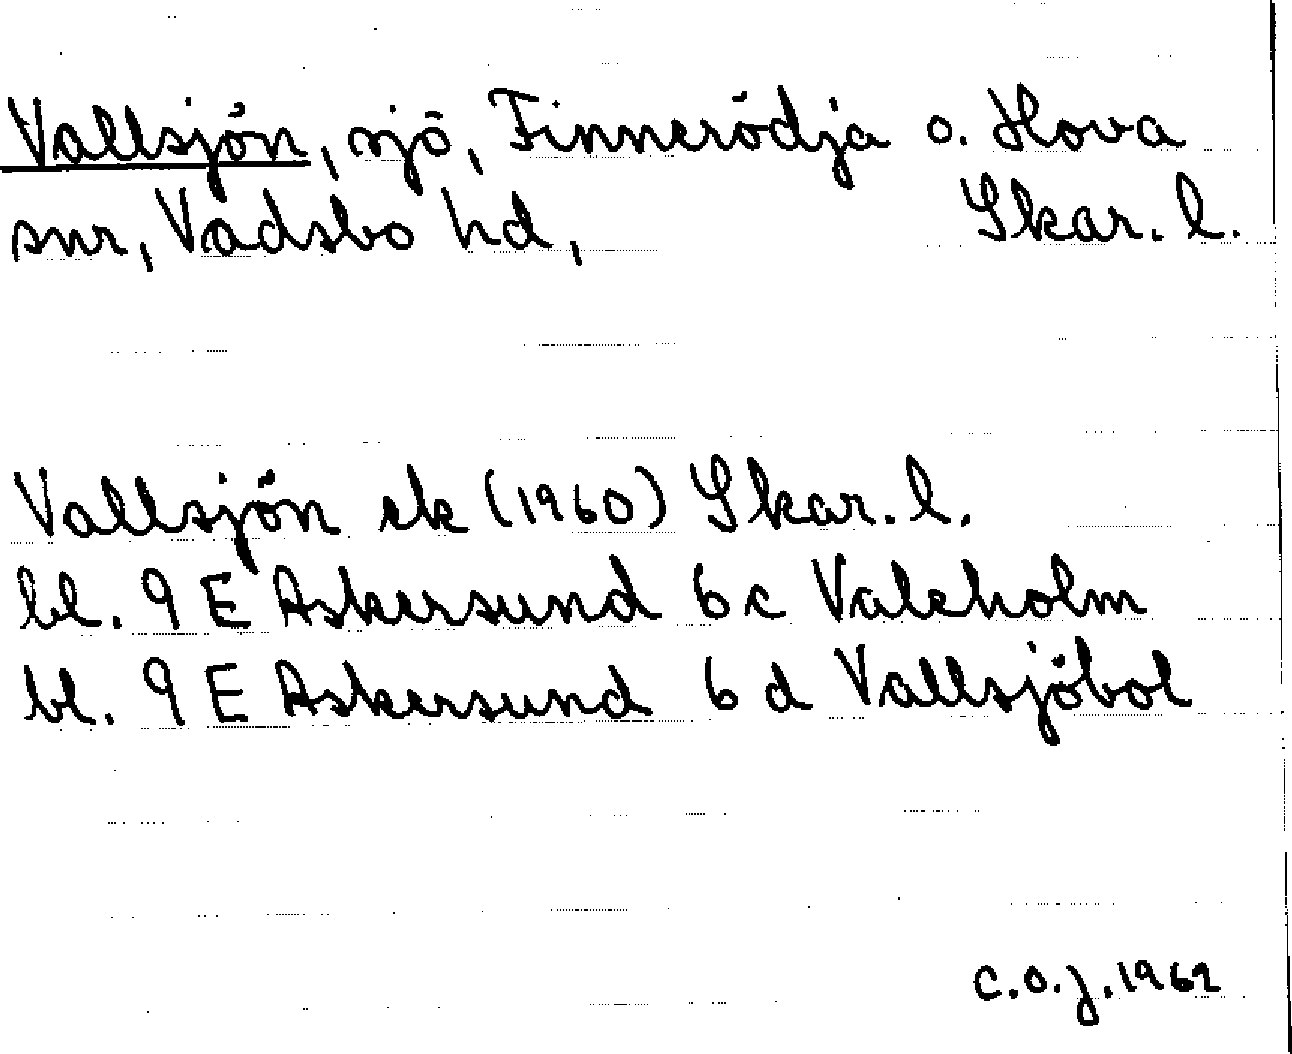 Vallsjön, sjö, Finnerödja o. Hova
snr, Vadsbo hd, Skar. l.
Vallsjön ek (1960) Skar. l.
bl. 9 E Askersund 6 c Valeholm
bl. 9 E Askersund 6 d Vallsjöbol
C.O.J. 1962